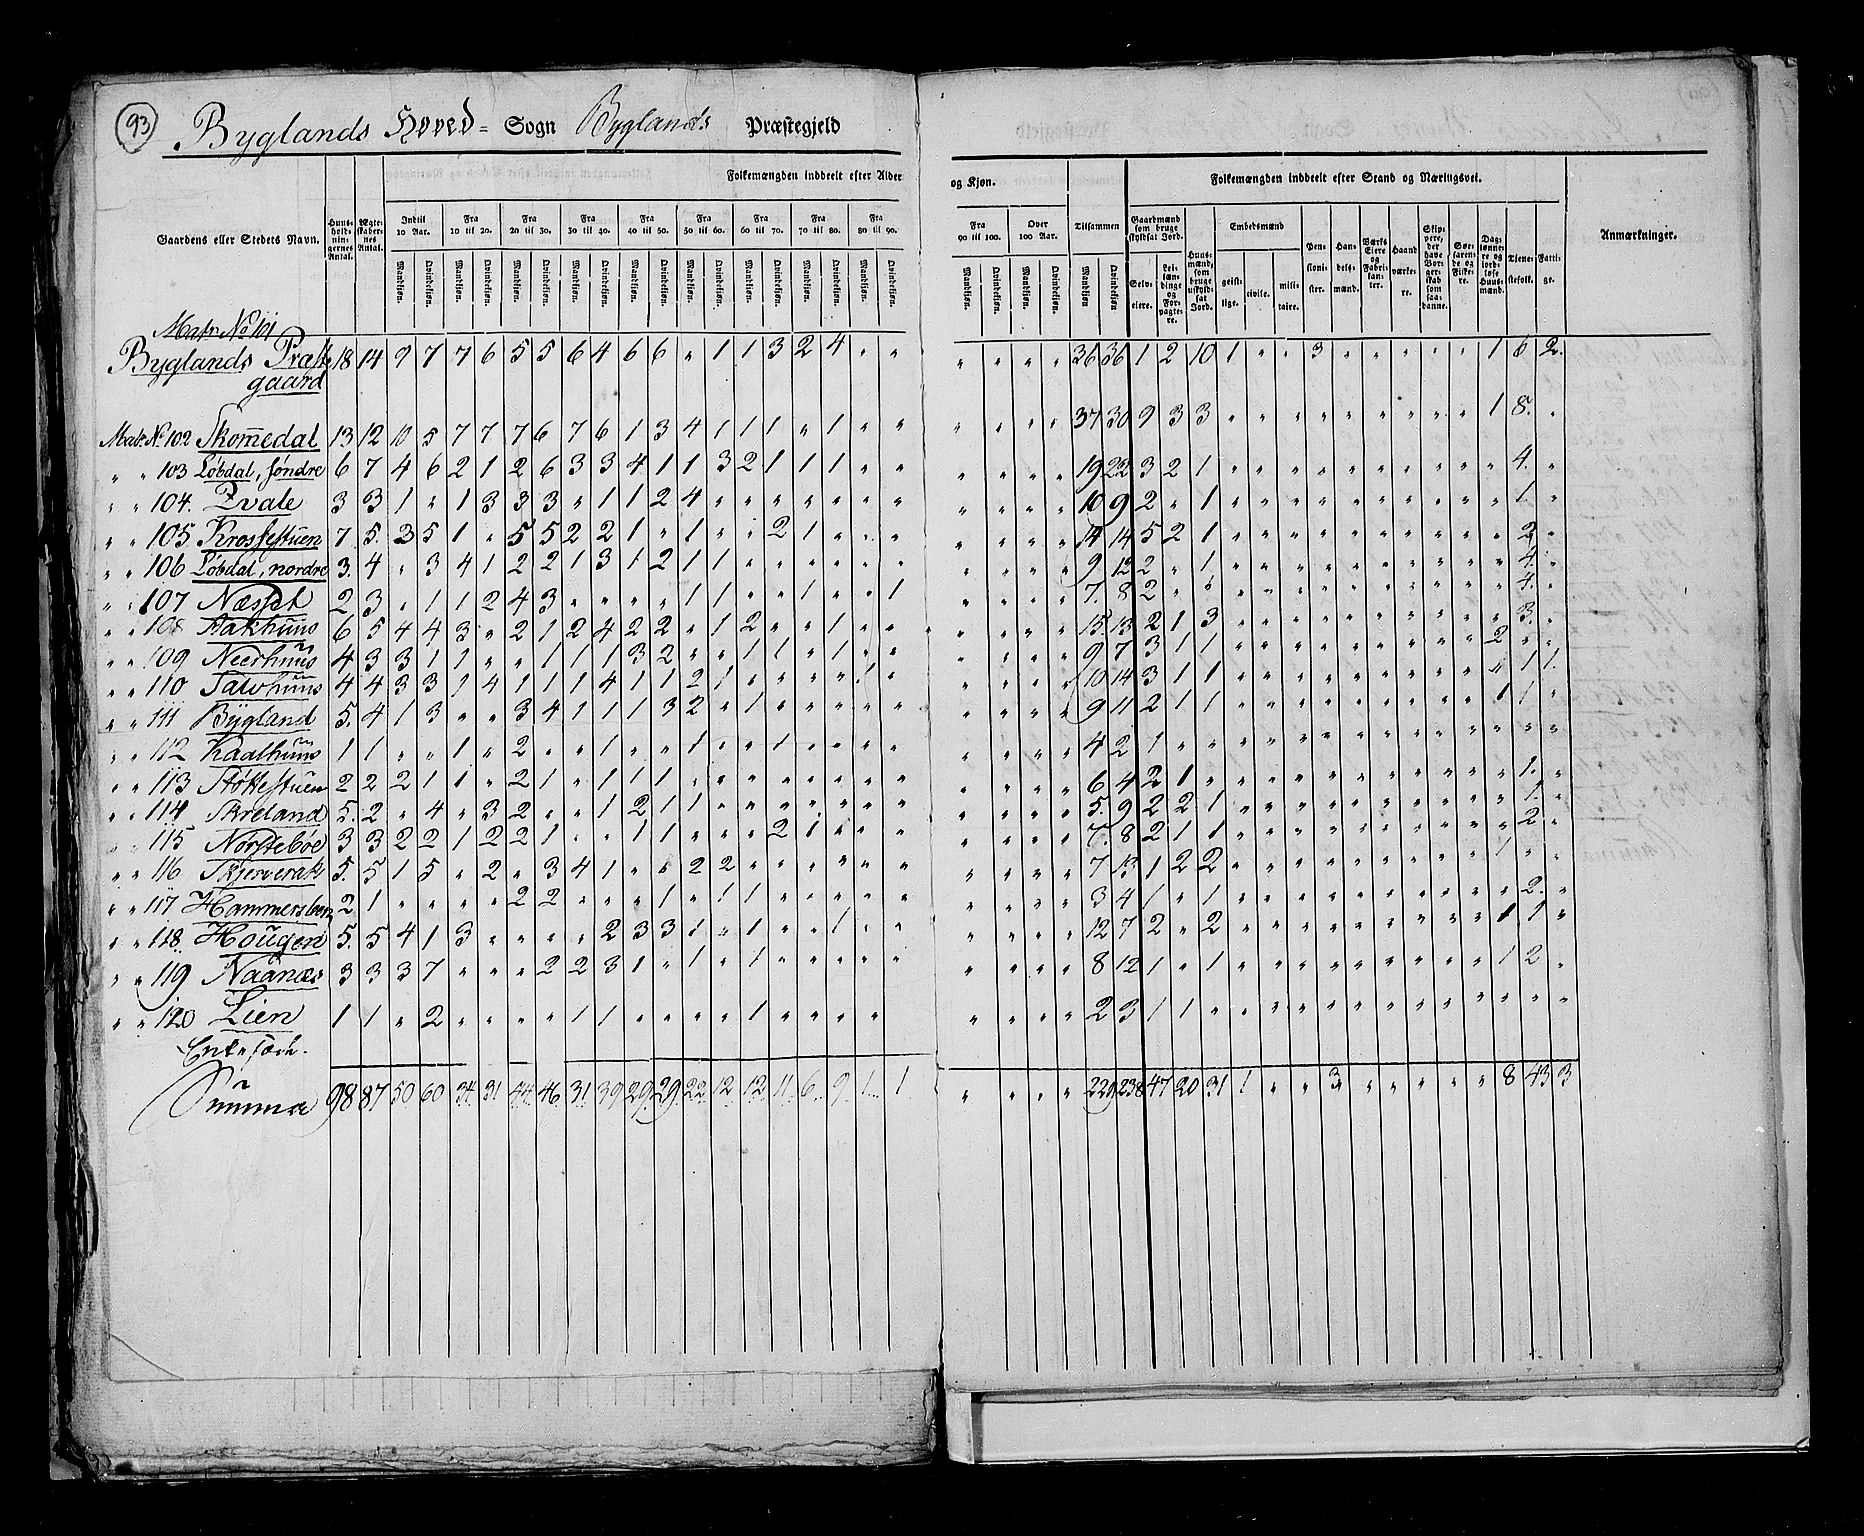 93
Byglands Hoved= Sogn Byglands Præstegjeld
Folkemængden inddeelt efter Alder og Kjøn. Folkemængden inddeelt efter Stand og Næringsvei.
Gaardens eller Stedets Navn. Huus-hold-nin-gernes Antal. Ægte-skaber-nes Antal. Indtil 10 Aar. Fra 10 til 20. Fra 20 til 30. Fra 30 til 40. Fra 40 til 50. Fra 50 til 60. Fra 60 til 70. Fra 70 til 80. Fra 80 til 90. Fra 90 til 100. Over 100 Aar. Tilsammen Gaardmænd som bruge skyldsat Jord. Huus-mænd, som bruge uskyld-sat Jord. Embedsmænd Pen-sioni-ster. Han-dels-mænd. Værks Eiere og Fabri-kan-ter. Haand værke-re. Skip-pere, der have Bor-ger-skab som saa-danne. Søe-farende og Fiske-re. Dag-lønne-re og jord-løse Huus-mænd. Tjene-stefolk. Fatti-ge. Anmærkninger.
Mandkjøn. Qvindekjøn. Selv-eiere. Lei-læn-dinge og For-pagte-re. geist-lige. civile. mili-taire.
Matr No 101
Byglands Præste 18 14 9 7 7 6 5 5 6 4 6 6 " 1 1 3 2 4 " " " " " " 36 36 1 2 10 1 " " 3 " " " " " 1 6 2.
gaard
Matr. No 102 Skomedal 13 12 10 5 7 7 7 6 7 6 1 3 4 1 1 1 " 1 " " " " " " 37 30 9 3 3 " " " " " " " " " 1 8. "
" " 103 Löbdal, söndre 6 7 4 6 2 1 2 6 3 3 4 1 1 3 2 1 1 1 " " " " " " 19 22 3 2 1 " " " " " " " " " " 4. "
" " 104. Qvale 3 3 1 " 1 3 3 3 " 1 1 2 4 " " " " " " " " " " " 10 9 2 " 1 " " " " " " " " " " 1. "
" " 105 Krossestuen 7. 5. 3 5 1 " 5 5 2 2 1 " 1 " " 2 1 " " " " " " " 14 14 5 2 1 " " " " " " " " " " 2. "
" " 106 Löbdal, nordre 3. 4 " 3 4 1 2 2 1 3 1 2 1 1 " " " " " " " " " " 9 12 2 " 1 " " " " " " " " " " 4. "
" " 107 Næsset 2 3 " 1 1 2 4 3 " " " " 1 1 " " 1 " " 1 " " " " 7. 8 2 " " " " " " " " " " " " 4. "
" " 108 Aakhuus 6 5 4 4 3 " 2 1 2 4 2 2 " 1 2 " " 1 " " " " " " 15. 13 2 1 3 " " " " " " " " " " 3. "
" " 109 Neerhuus 4 3 3 1 1 " " 1 1 1 3 2 " " 1 1 " 1 " " " " " " 9 7 3 1 1 " " " " " " " " " 2 " "
" " 110 4 4 3 3 1 4 1 1 1 4 1 1 2 1 " " " " 1 " " " " " 10 14 3 1 1 " " " " " " " " " " 1 1.
" " 111 Bÿgland 5. 4 1 3 " " 3 4 1 1 1 3 2 " 1 " " " " " " " " " 9 11 2 1 1 " " " " " " " " " 1 1 "
" " 112 Kaalhuus 1 1 " " 1 " 2 " " 1 " " 1 " " 1 " " " " " " " " 4 2 1 " " " " " " " " " " " " " "
" " 113 Stökkestuen 2 2 2 1 1 " 2 1 " 1 1 1 " " " " " " " " " " " " 6 4 2 1 " " " " " " " " " " " 1. "
" " 114 Skreland 5. 2 " 4 " 3 2 " " 1 2 1 1 " " " " " " " " " " " 5. 9 2 2 1 " " " " " " " " " " 1. "
" " 115 Norsteböe 3 3 2 2 1 2 2 1 " " 1 1 " " " 2 1 " " " " " " " 7. 8 2 1 1 " " " " " " " " " " 2 "
" " 116 Skjerverak 5. 5 1 5 " 2 " 3 4 1 " " 2 2 " " " " " " " " " " 7 13 1 2 2 " " " " " " " " " 1 " "
" " 117 2 1 " " " " 2 2 " " " 1 " 1 1 " " " " " " " " " 3 4 1 " 1 " " " " " " " " " " 2. "
" " 118. Hougen 5. 5 4 1 3 " " " " 2 3 3 1 " 1 " " 1 " " " " " " 12 7 2 " 2 " " " " " " " " " 1 1 "
" " 119 Naanæs 3 3 3 7 " " " 2 2 3 1 " 1 " 1 " " " " " " " " " 8 12 1 " 1 " " " " " " " " " 1 2 "
" " 120 Lien 1 1 " 2 " " " " 1 1 " " " " 1 " " " " " " " " 2 3 1 1 " " " " " " " " " " " " "
Enkesæde.
Summa 98 87 50 60 34 31 44 46 31 39 29 29 22 12 12 11 6 9 1 1 " " " " 229 238 47 20 31 1 " " 3 " " " " " 8 43 3